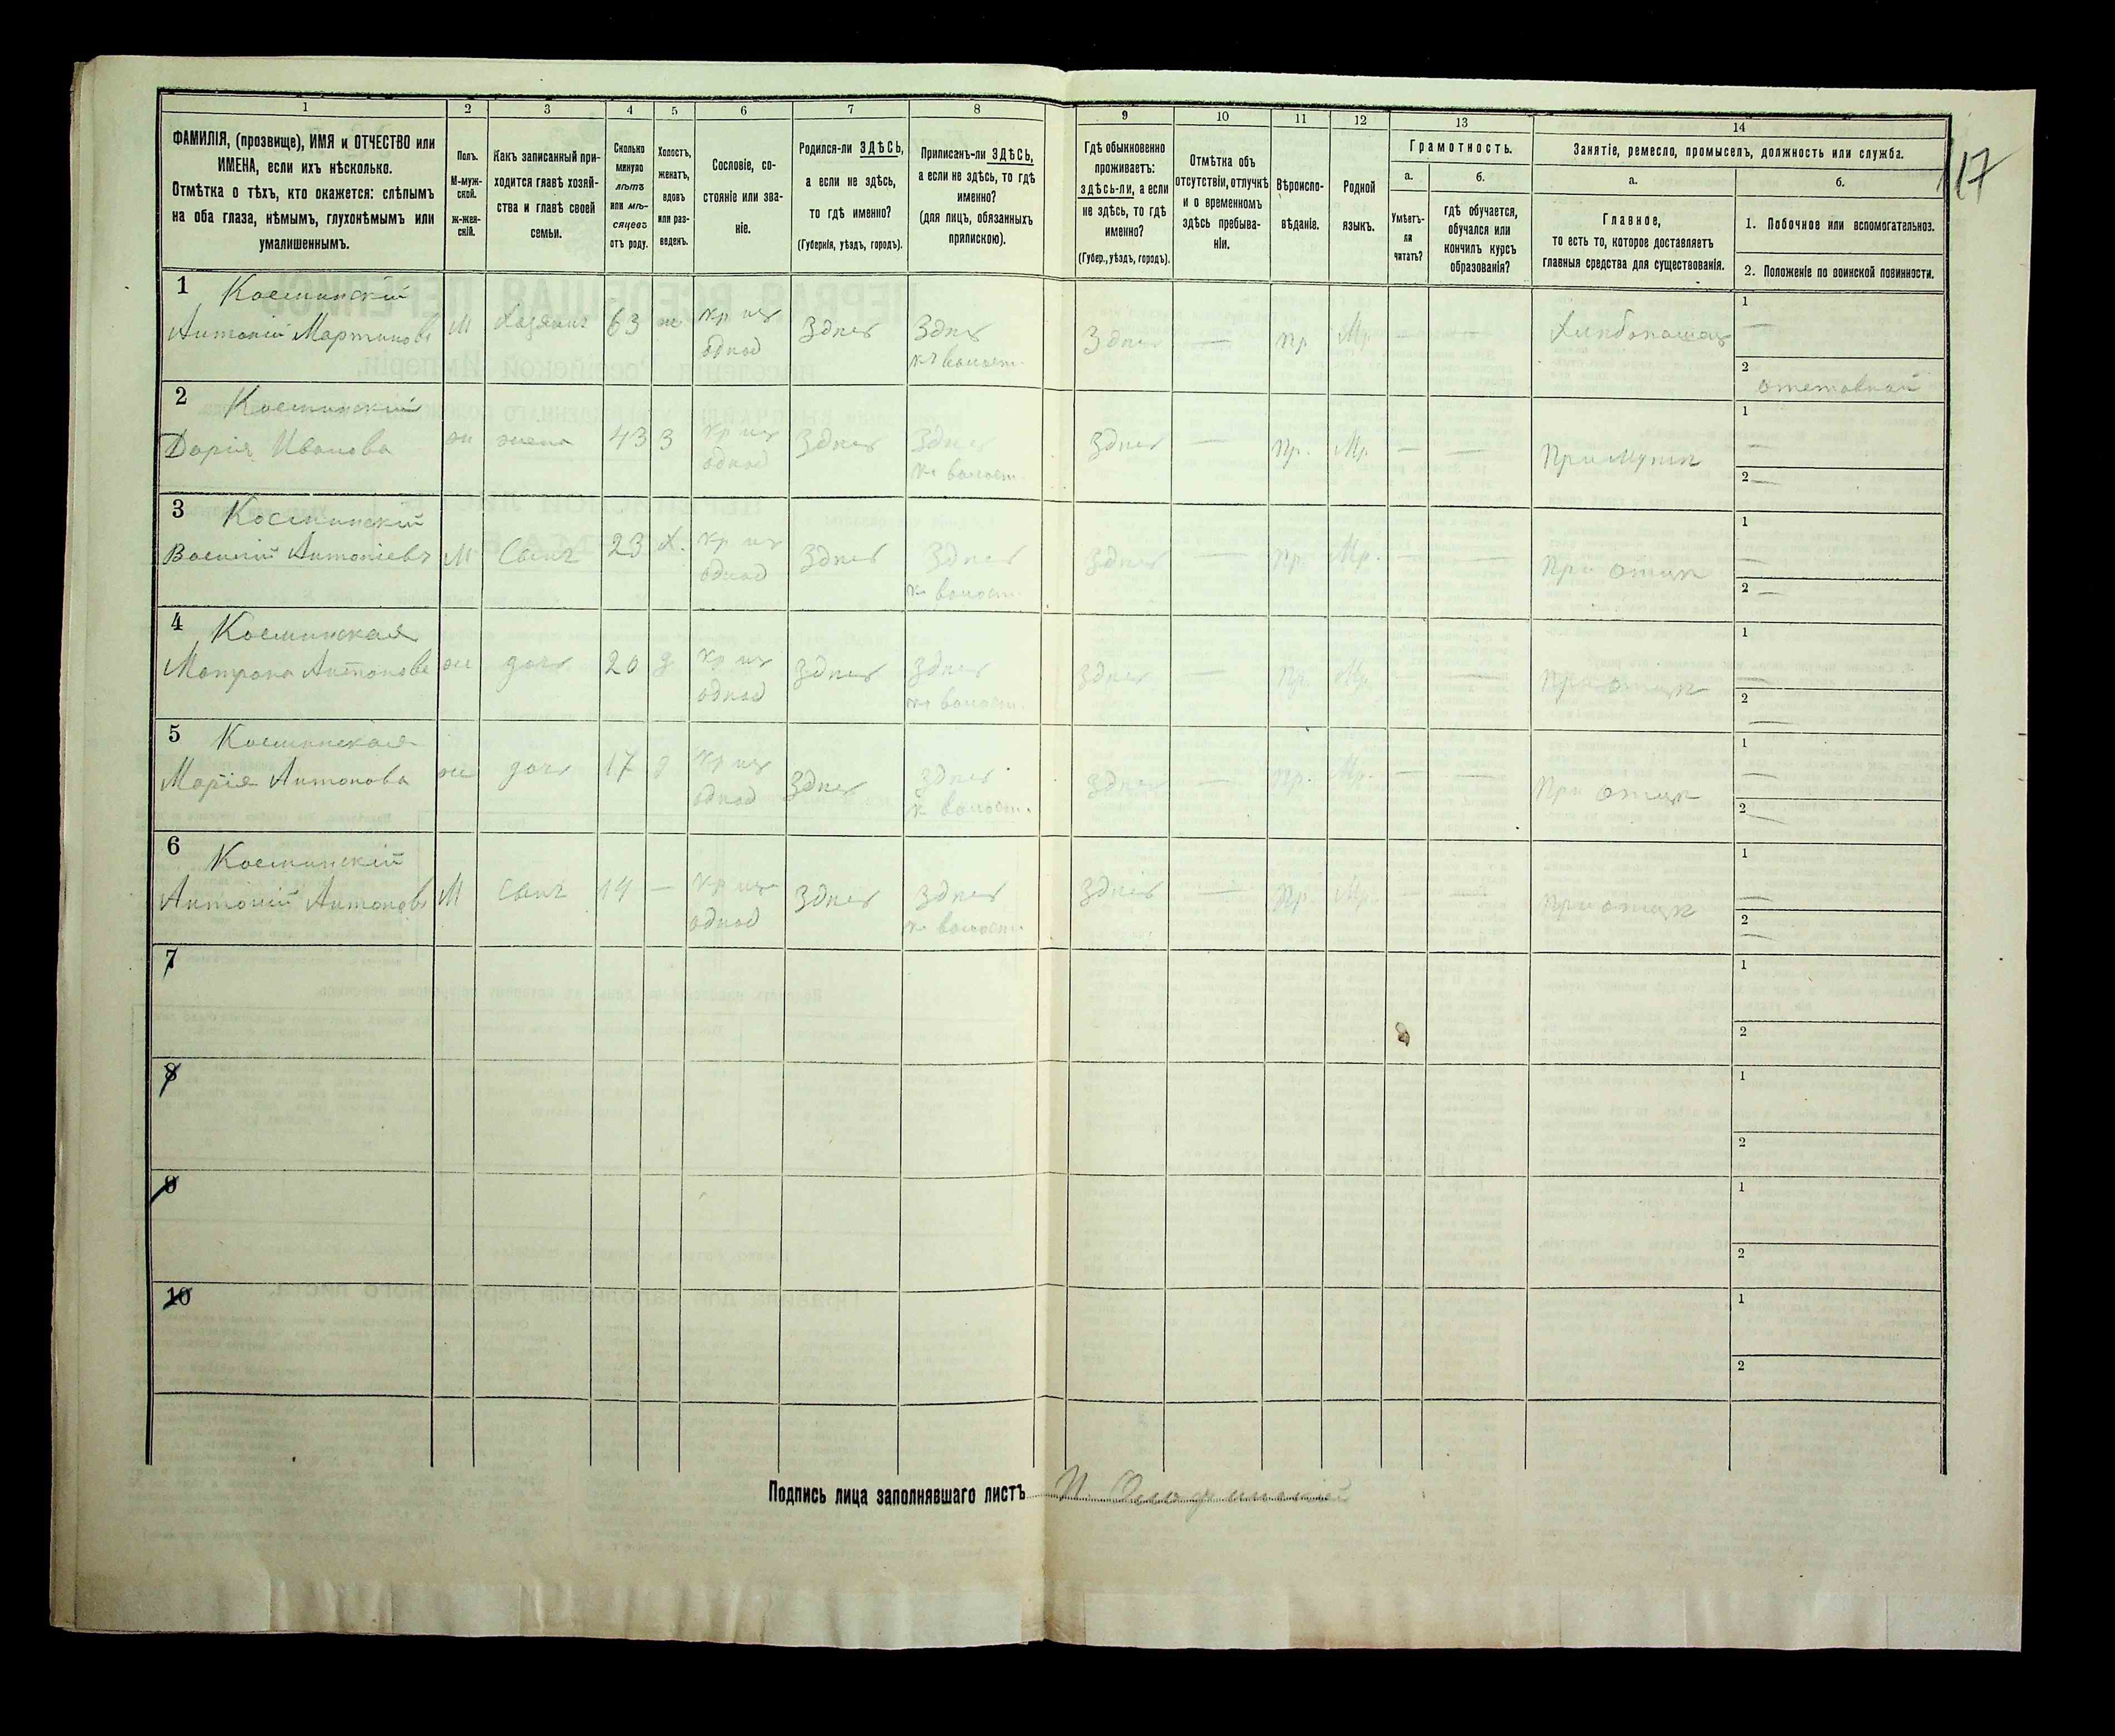 117
1 2 3 4 5 6 7 8 9 10 11 12 13 14
ФАМИЛІЯ, (прозвище), ИМЯ и ОТЧЕСТВО или
ИМЕНА, если ихъ нѣсколько.
Отмѣтка о тѣхъ, кто окажется: слѣпымъ
на оба глаза, нѣмымъ, глухонѣмымъ или
умалишеннымъ.
Полъ.
М-муж-
ской.
ж-жен-
скій.
Какъ записанный при-
ходится главѣ хозяй-
ства и главѣ своей
семьи.
Сколько
минуло
лѣтъ
или мѣ-
сяцевъ
отъ роду.
Холостъ,
женатъ,
вдовъ
или раз-
веденъ.
Сословіе, со-
стояніе или зва-
ніе.
Родился-ли ЗДѢСЬ,
а если не здѣсь,
то гдѣ именно?
(Губернія, уѣздъ, городъ).
Приписанъ-ли ЗДѢСЬ,
а если не здѣсь, то гдѣ
именно?
(для лицъ, обязанныхъ
припискою).
Гдѣ обыкновенно
проживаетъ:
здѣсь-ли, а если
не здѣсь, то гдѣ
именно?
(Губер., уѣздъ, городъ).
Отмѣтка объ
отсутствіи, отлучкѣ
и о временномъ
здѣсь пребыва-
ніи.
Вѣроиспо-
вѣданіе.
Родной
языкъ.
Грамотность.
а.
Умѣетъ-
ли
читать?
б.
гдѣ обучается,
обучался или
кончилъ курсъ
образованія?
Занятіе, ремесло, промыселъ, должность или служба.
а.
Главное,
то есть то, которое доставляетъ
главныя средства для существованія.
б.
1. Побочное или вспомогательное.
2. Положеніе по воинской повинности.
1
Антоній Мартиновъ М Хазяинъ 63 ж кр из
однод
Здѣсь Здѣсь
к волост.
Здѣсь — пр Мр — — Хлибопашец
1 —
2
2
Дарія Иванова ж жена 43 З кр из
однод
Здѣсь Здѣсь
к волост.
Здѣсь — пр. Мр — — При мужи
1 —
2 —
3
Василій Антоніевъ М Сынъ 23 Х. кр из
однод
Здѣсь Здѣсь
к волост.
Здѣсь — пр. Мр. — — При отци
1 —
2 —
4
Матрона Антонова ж дочь 20 д кр из
однод
Здѣсь Здѣсь
к волост.
Здѣсь — пр. Мр. — — При отци
1 —
2 —
5
Марія Антонова ж дочь 17 д кр из
однод
Здѣсь Здѣсь
к волост.
Здѣсь — пр. Мр. — — При отци
1 —
2 —
6
Антоній Антоновъ М Сынъ 14 — кр из
однод
Здѣсь Здѣсь
к волост.
Здѣсь — пр. Мр. — — При отци
1 —
2 —
7
1
2
8
1
2
9
1
2
10
1
2
Подпись лица заполнявшаго листъ